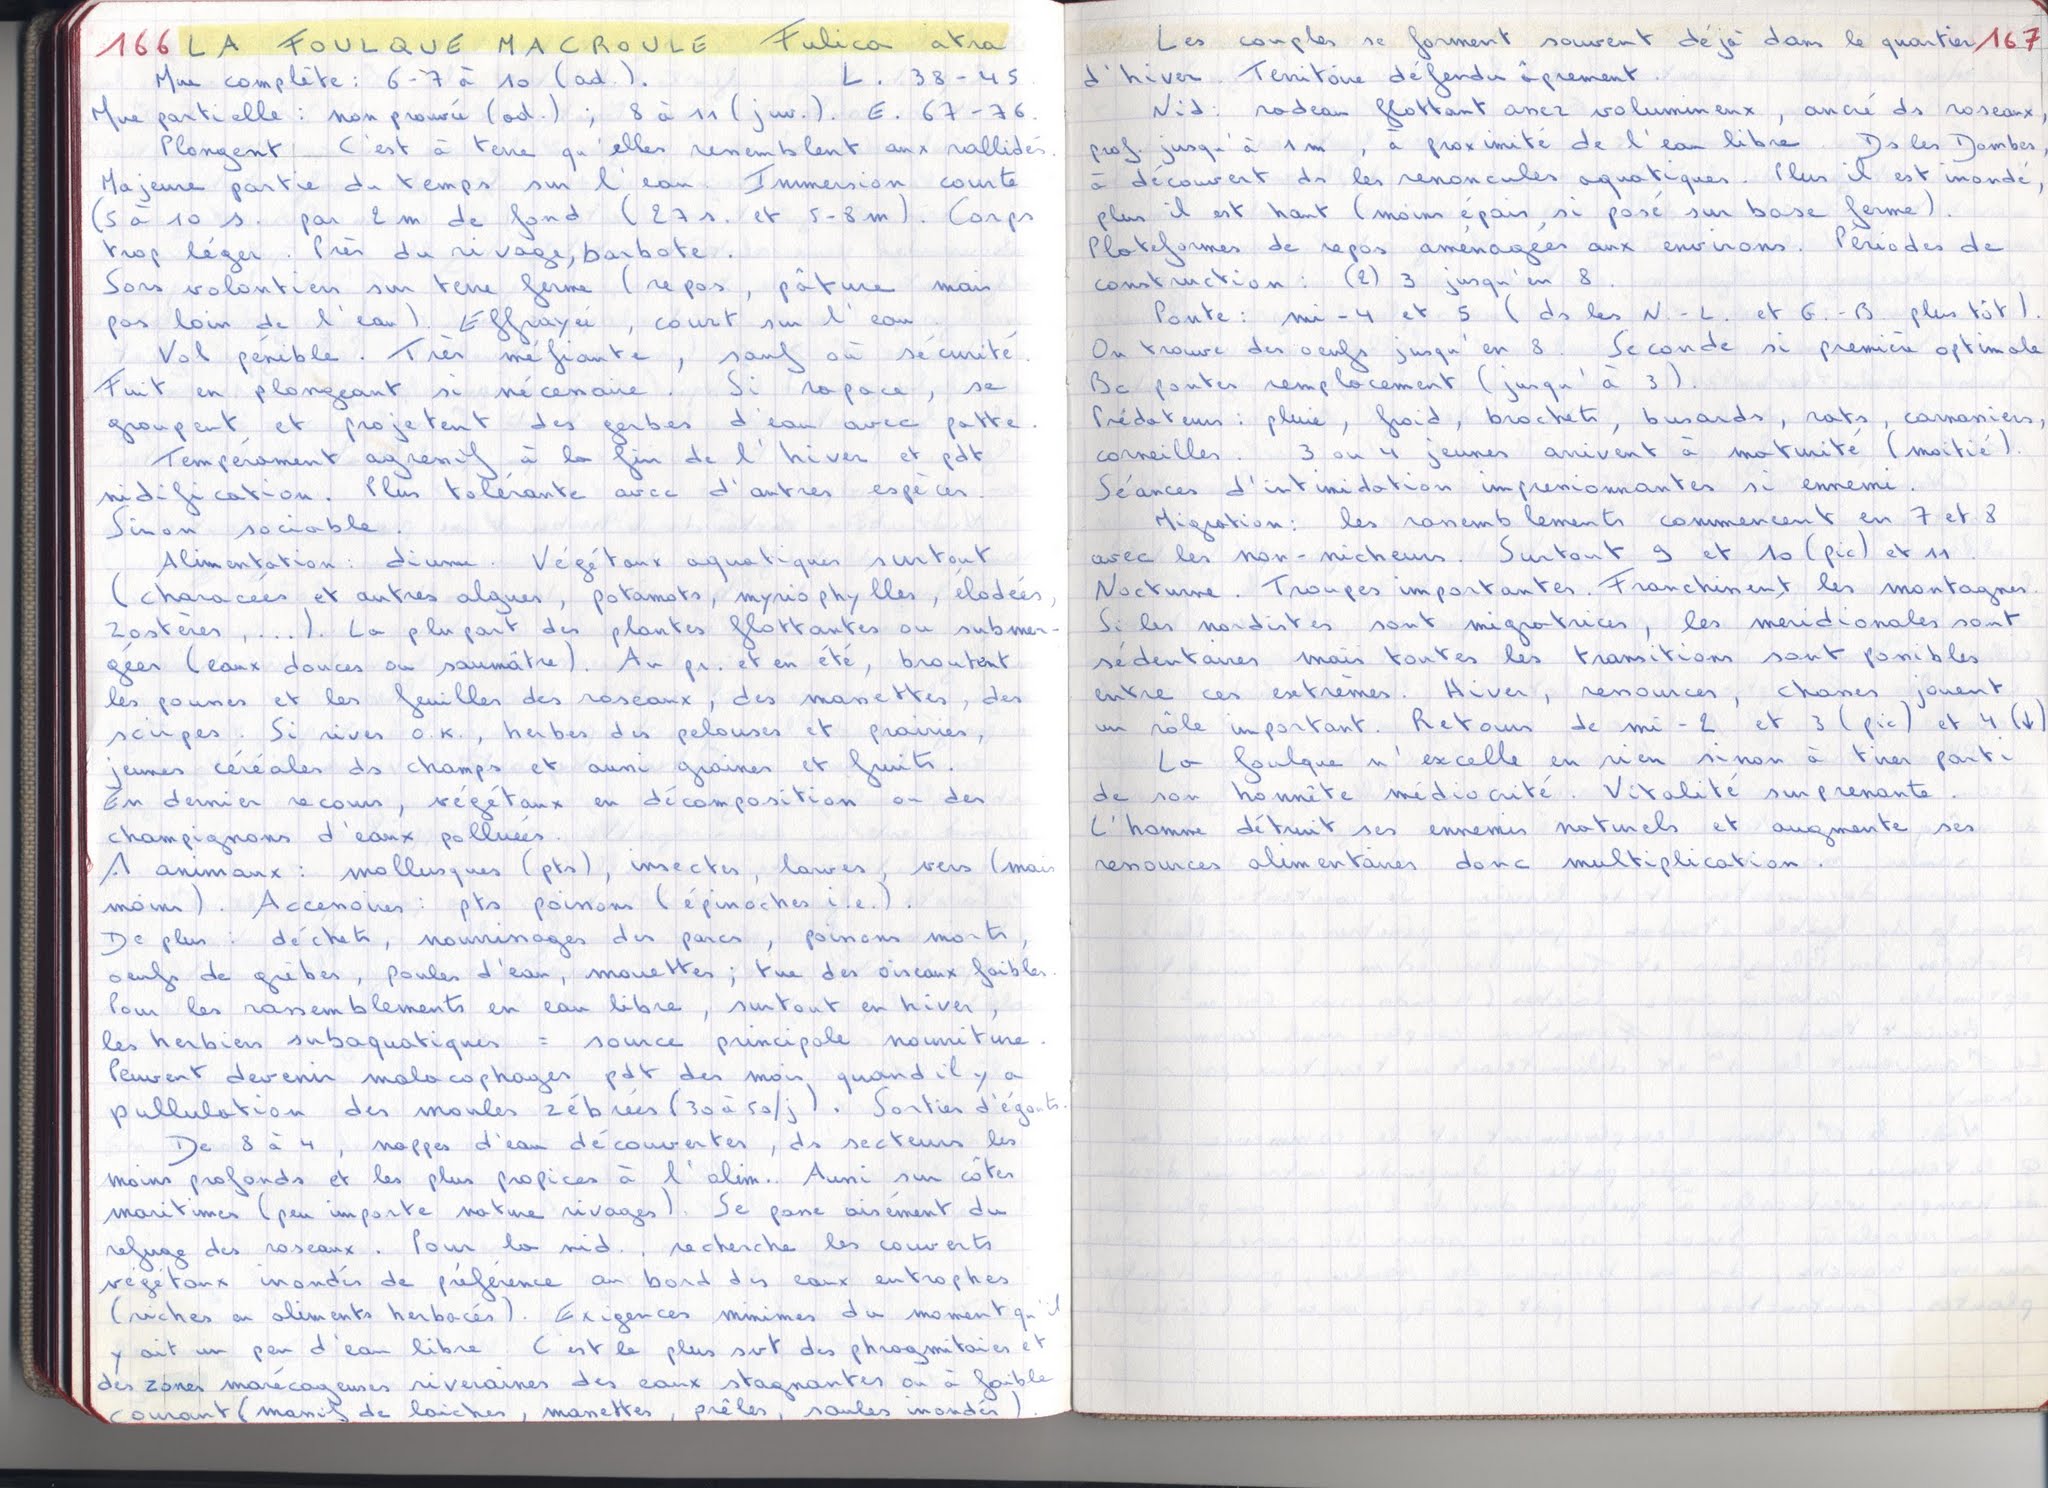 166 LA FOULQUE MACROULE Fulica atra
Mue complète : 6-7 à 10 (ad.). L. 38-45
Mue partielle : non prouvée (ad.) ; 8 à 11 (juv.). E. 67-76.
Plongent. C'est à terre qu'elles ressemblent aux rallidés.
Majeure partie du temps sur l'eau. Immersion courte
(5 à 10 s. par 2 m de fond (27 s. et 5-8 m). Corps
trop léger. Près du rivage, barbote.
Sors volontiers sur terre ferme (repos, pâture mais
pas loin de l'eau). Effrayée, court sur l'eau.
Vol pénible. Très méfiante, sauf où sécurité.
Fuit en plongeant si nécessaire. Si rapace, se
groupent et projetent des gerbes d'eau avec patte.
Tempérament agressif à la fin de l'hiver et pdt
nidification. Plus tolérante avec d'autres espèces.
Sinon sociable.
Alimentation : diurne. Végétaux aquatiques surtout
(characées et autres algues, potamots, myriophylles, élodées,
zostères, ...). La plupart des plantes flottantes ou submer-
gées (eaux douces ou saumâtre). Au pr. et en été, broutent
les pousses et les feuilles des roseaux, des massettes, des
scirpes. Si rives o.k., herbes des pelouses et prairies,
jeunes céréales ds champs et aussi graines et fruits.
En dernier recours, végétaux en décomposition ou des
champignons d'eaux polluées.
A animaux : mollusques (pts), insectes, larves, vers (mais
moins). Accessoires : pts poissons (épinoches i.e.).
De plus : déchets, nourrissages des parcs, poissons morts,
oeufs de grèbes, poules d'eau, mouettes ; tue des oiseaux faibles.
Pour les rassemblements en eau libre, surtout en hiver,
les herbiers subaquatiques = source principale nourriture.
Peuvent devenir malacophages pdt des mois, quand il y a
pullulation des moules zébrées (30 à 50/j). Sorties d'égouts.
De 8 à 4, nappes d'eau découvertes, ds secteurs les
moins profonds et les plus propices à l'alim.. Aussi sur côtes
maritimes (peu importe nature rivages). Se passe aisément du
refuge des roseaux. Pour la nid., recherche les couverts
végétaux inondés de préférence au bord des eaux eutrophes
(riches en aliments herbacés). Exigences minimes du moment qu'il
y ait un peu d'eau libre. C'est le plus svt des phragmitaies et
des zones marécageuses riveraines des eaux stagnantes ou à faible
courant (massif de laiches, massettes, prêles, saules inondés).
Les couples se forment souvent déjà dans le quartier 167
d'hiver. Territoire défendu âprement.
Nid : radeau flottant assez volumineux, ancré ds roseaux,
prof. jusqu'à 1m, à proximité de l'eau libre. Ds les Dombes,
à découvert ds les renoncules aquatiques. Plus il est inondé,
plus il est haut (moins épais si posé sur base ferme).
Plateformes de repos aménagées aux environs. Périodes de
construction : (2) 3 jusqu'en 8.
Ponte : mi-4 et 5 (ds les N.-L. et G.-B. plus tôt).
On trouve des oeufs jusqu'en 8. Seconde si première optimale
Bc pontes remplacement (jusqu'à 3).
Prédateurs : pluie, froid, brochets, busards, rats, carnassiers,
corneilles. 3 ou 4 jeunes arrivent à maturité (moitié).
Séances d'intimidation impressionnantes si ennemi.
Migration : les rassemblements commencent en 7 et 8
avec les non-nicheurs. Surtout 9 et 10 (pic) et 11.
Nocturne. Troupes importantes. Franchissent les montagnes.
Si les nordistes sont migratrices, les meridionales sont
sédentaires mais toutes les transitions sont possibles
entre ces extrêmes. Hiver, ressources, chasses jouent
un rôle important. Retours de mi-2 et 3 (pic) et 4 (↓)
La foulque n'excelle en rien sinon à tirer parti
de son honnête médiocrité. Vitalité surprenante.
L'homme détruit ses ennemis naturels et augmente ses
ressources alimentaires donc multiplication.